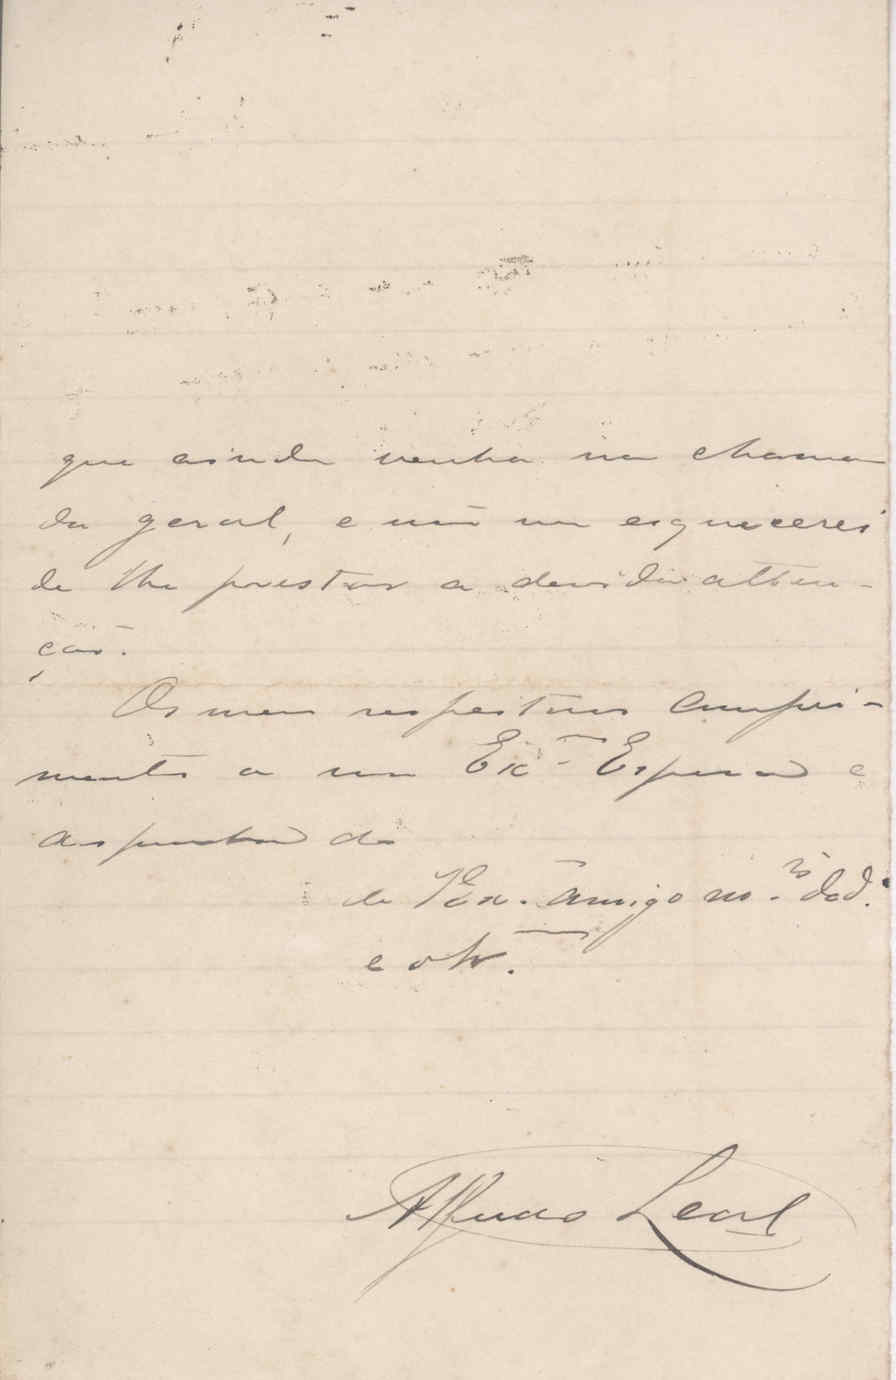 que ainda venha na chama
da geral, e não me esquecerei
de lhe prestar a devida atten-
ção.
Os meus respeitosos cumpri-
mentos a sua Exª Esposa e
de VExª amigo
e obrº.
Alfredo Leal